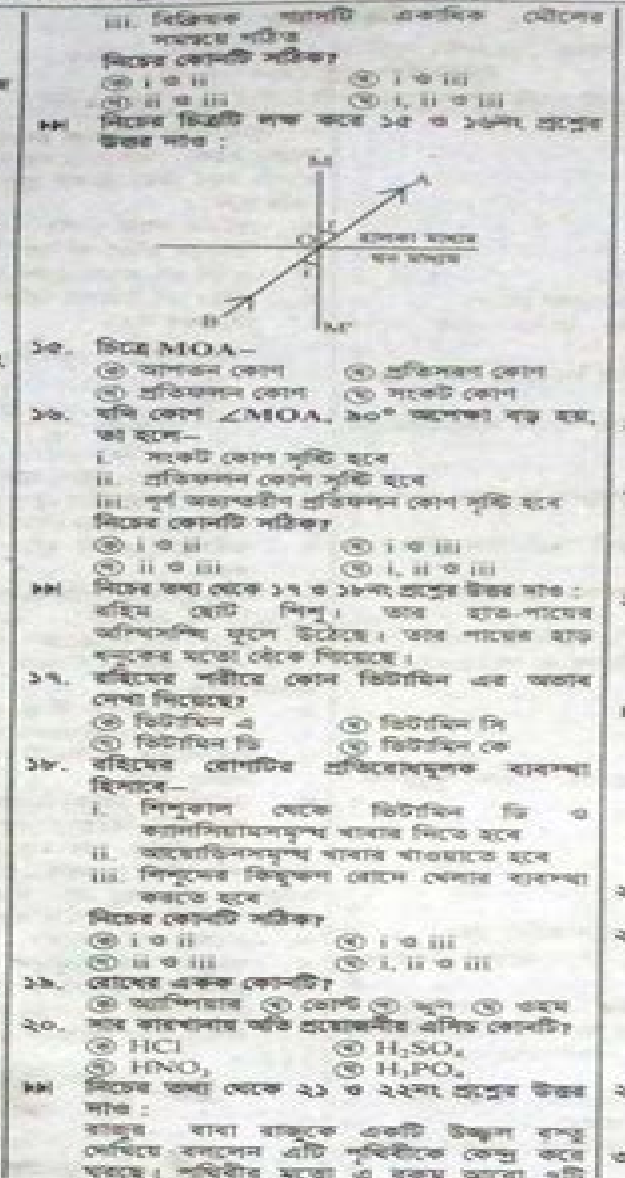 iii. বিক্রিয়ক গ্যাসটি একাধিক মৌলের
সমন্বয়ে গঠিত
নিচের কোনটি সঠিক?
ক i ও ii খ i ও iii
গ ii ও iii ঘ i, ii ও iii
নিচের চিত্রটি লক্ষ করে ১৫ ও ১৬নং প্রশ্নের
উত্তর দাও :
M
A
r
O হালকা মাধ্যম
ঘন মাধ্যম
i
B
M'
১৫. চিত্রে MOA–
ক আপতন কোণ খ প্রতিসরণ কোণ
গ প্রতিফলন কোণ ঘ সংকট কোণ
১৬. যদি কোণ ∠MOA, ৯০° অপেক্ষা বড় হয়,
তা হলে–
i. সংকট কোণ সৃষ্টি হবে
ii. প্রতিফলন কোণ সৃষ্টি হবে
iii. পূর্ণ অভ্যন্তরীণ প্রতিফলন কোণ সৃষ্টি হবে
নিচের কোনটি সঠিক?
ক i ও ii খ i ও iii
গ ii ও iii ঘ i, ii ও iii
নিচের তথ্য থেকে ১৭ ও ১৮নং প্রশ্নের উত্তর দাও :
রহিম ছোট শিশু। তার হাত-পায়ের
অস্থিসন্ধি ফুলে উঠেছে। তার পায়ের হাড়
ধনুকের মতো বেঁকে গিয়েছে।
১৭. রহিমের শরীরে কোন ভিটামিন এর অভাব
দেখা দিয়েছে?
ক ভিটামিন এ খ ভিটামিন সি
গ ভিটামিন ডি ঘ ভিটামিন কে
১৮. রহিমের রোগটির প্রতিরোধমূলক ব্যবস্থা
হিসাবে–
i. শিশুকাল থেকে ভিটামিন ডি ও
ক্যালসিয়ামসমৃদ্ধ খাবার দিতে হবে
ii. আয়োডিনসমৃদ্ধ খাবার খাওয়াতে হবে
iii. শিশুদের কিছুক্ষণ রোদে খেলার ব্যবস্থা
করতে হবে
নিচের কোনটি সঠিক?
ক i ও ii খ i ও iii
গ ii ও iii ঘ i, ii ও iii
১৯. রোধের একক কোনটি?
ক অ্যাম্পিয়ার খ ভোল্ট গ জুল ঘ ওহম
২০. সার কারখানায় অতি প্রয়োজনীয় এসিড কোনটি?
ক HCl খ H₂SO₄
গ HNO₃ ঘ H₃PO₄
নিচের তথ্য থেকে ২১ ও ২২নং প্রশ্নের উত্তর
দাও :
রাজুর বাবা রাজুকে একটি উজ্জ্বল বস্তু
দেখিয়ে বললেন এটি পৃথিবীকে কেন্দ্র করে
ঘুরছে। পৃথিবীর মতো